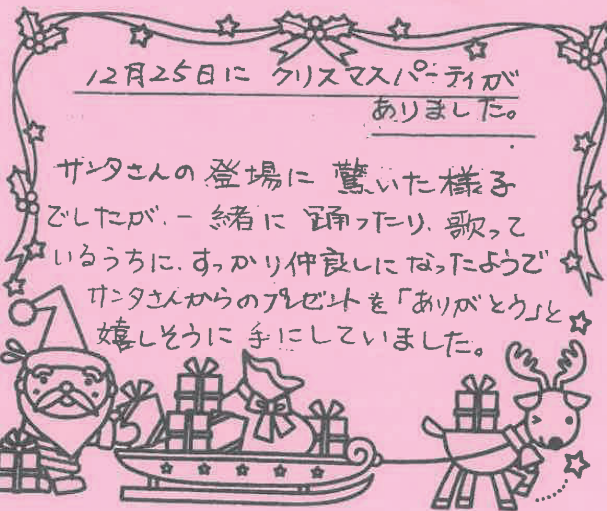 12月25日に クリスマスパーティが
ありました。
サンタさんの登場に驚いた様子
でしたが、一緒に踊ったり、歌って
いるうちに、すっかり仲良しになったようで
サンタさんからのプレゼントを「ありがとう」と
嬉しそうに手にしていました。